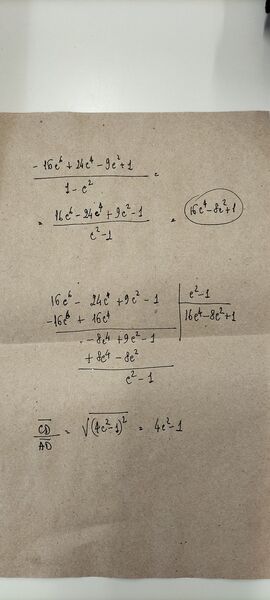 -16c⁶ + 24c⁴ - 9c² + 1
1 - c²
=
= 16c⁶ - 24c⁴ + 9c² - 1
c² - 1
= 16c⁴ - 8c² + 1
16c⁶ - 24c⁴ + 9c² - 1 | c² - 1
-16c⁶ + 16c⁴ | 16c⁴ - 8c² + 1
- 8c⁴ + 9c² - 1
+ 8c⁴ - 8c²
c² - 1
CD/AD = √(4c² - 1)² = 4c² - 1